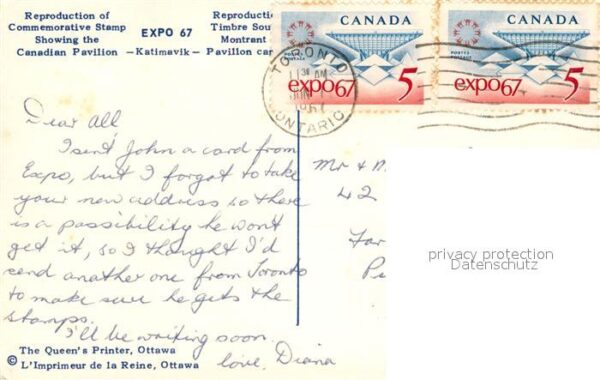 Reproduction of
Commemorative Stamp
Showing the
Canadian Pavilion
EXPO 67
— Katimavik —
Reproducti
Timbre Sou
Montrant
Pavillon can
CANADA
POSTES
POSTAGE
expo67
5
CANADA
POSTES
POSTAGE
expo67
5
TORONTO
AM
1967
ONTARIO
Dear All
I sent John a card from
Expo, but I forgot to take
your new address so there
is a possibility he won't
get it, so I thought I'd
send another one from Toronto
to make sure he gets the
stamps.
I'll be writing soon.
love, Diana
Mr & M
42
Far
privacy protection
Datenschutz
The Queen's Printer, Ottawa
© L'Imprimeur de la Reine, Ottawa